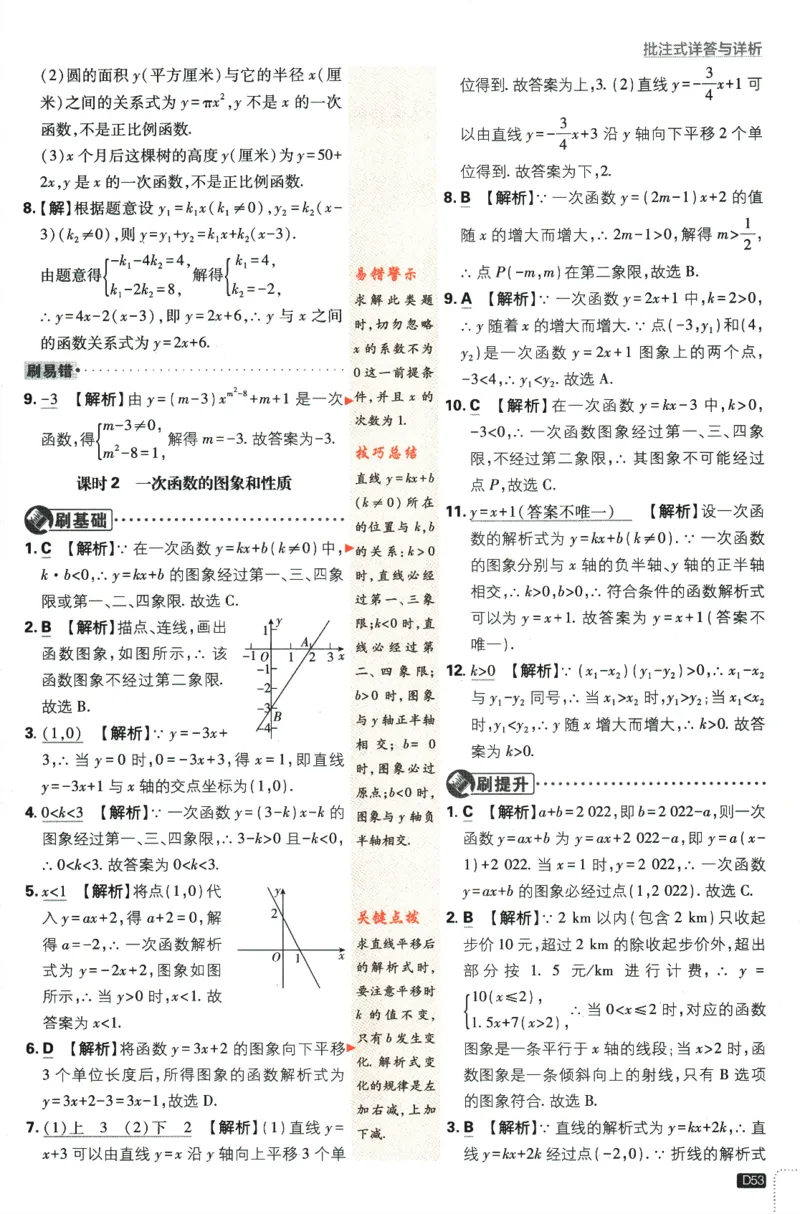 批注式详答与详析
(2)圆的面积 y(平方厘米)与它的半径 x(厘
米)之间的关系式为 y=πx²,y 不是 x 的一次
函数,不是正比例函数.
(3)x 个月后这棵树的高度 y(厘米)为 y=50+
2x,y 是 x 的一次函数,不是正比例函数.
8.【解】根据题意设 y₁=k₁x(k₁≠0),y₂=k₂(x-
3)(k₂≠0),则 y=y₁+y₂=k₁x+k₂(x-3).
由题意得{-k₁-4k₂=4, k₁-2k₂=8, 解得{k₁=4, k₂=-2,
∴ y=4x-2(x-3),即 y=2x+6,∴ y 与 x 之间
的函数关系式为 y=2x+6.
刷易错
9. -3 【解析】由 y=(m-3)x^(m²-8)+m+1 是一次
函数,得{m-3≠0, m²-8=1, 解得 m=-3. 故答案为-3.
课时2 一次函数的图象和性质
刷基础
1. C 【解析】∵ 在一次函数 y=kx+b(k≠0)中,
k·b<0,∴ y=kx+b 的图象经过第一、三、四象
限或第一、二、四象限. 故选 C.
2. B 【解析】描点、连线,画出
函数图象,如图所示,∴ 该
函数图象不经过第二象限.
故选 B.
y
1
A
-1 O 1 2 3 x
-1
-2
-3
B
-4
3. (1,0) 【解析】∵ y=-3x+
3,∴ 当 y=0 时,0=-3x+3,得 x=1,即直线
y=-3x+1 与 x 轴的交点坐标为(1,0).
4. 0<k<3 【解析】∵ 一次函数 y=(3-k)x-k 的
图象经过第一、三、四象限,∴ 3-k>0 且-k<0,
∴ 0<k<3. 故答案为 0<k<3.
5. x<1 【解析】将点(1,0)代
入 y=ax+2,得 a+2=0,解
得 a=-2,∴ 一次函数解析
式为 y=-2x+2,图象如图
所示,∴ 当 y>0 时,x<1. 故
答案为 x<1.
y
2
O 1 x
6. D 【解析】将函数 y=3x+2 的图象向下平移
3 个单位长度后,所得图象的函数解析式为
y=3x+2-3=3x-1,故选 D.
7. (1)上 3 (2)下 2 【解析】(1)直线 y=
x+3 可以由直线 y=x 沿 y 轴向上平移 3 个单
易错警示
求解此类题
时,切勿忽略
x 的系数不为
0 这一前提条
件,并且 x 的
次数为 1.
技巧总结
直线 y=kx+b
(k≠0)所在
的位置与 k,b
的关系:k>0
时,直线必经
过第一、三象
限;k<0 时,直
线必经过第
二、四象限;
b>0 时,图象
与 y 轴正半轴
相交; b=0
时,图象必过
原点;b<0 时,
图象与 y 轴负
半轴相交.
关键点拨
求直线平移后
的解析式时,
要注意平移时
k 的值不变,
只有 b 发生变
化. 解析式变
化的规律是左
加右减,上加
下减.
位得到. 故答案为上,3. (2)直线 y=-3/4x+1 可
以由直线 y=-3/4x+3 沿 y 轴向下平移 2 个单
位得到. 故答案为下,2.
8. B 【解析】∵ 一次函数 y=(2m-1)x+2 的值
随 x 的增大而增大,∴ 2m-1>0,解得 m>1/2,
∴ 点 P(-m,m)在第二象限,故选 B.
9. A 【解析】∵ 一次函数 y=2x+1 中,k=2>0,
∴ y 随着 x 的增大而增大. ∵ 点(-3,y₁)和(4,
y₂)是一次函数 y=2x+1 图象上的两个点,
-3<4,∴ y₁<y₂. 故选 A.
10. C 【解析】在一次函数 y=kx-3 中,k>0,
-3<0,∴ 一次函数图象经过第一、三、四象
限,不经过第二象限,∴ 其图象不可能经过
点 P,故选 C.
11. y=x+1(答案不唯一) 【解析】设一次函
数的解析式为 y=kx+b(k≠0). ∵ 一次函数
的图象分别与 x 轴的负半轴、y 轴的正半轴
相交,∴ k>0,b>0,∴ 符合条件的函数解析式
可以为 y=x+1. 故答案为 y=x+1(答案不
唯一).
12. k>0 【解析】∵ (x₁-x₂)(y₁-y₂)>0,∴ x₁-x₂
与 y₁-y₂ 同号,∴ 当 x₁>x₂ 时,y₁>y₂;当 x₁<x₂
时,y₁<y₂,∴ y 随 x 增大而增大,∴ k>0. 故答
案为 k>0.
刷提升
1. C 【解析】a+b=2 022,即 b=2 022-a,则一次
函数 y=ax+b 为 y=ax+2 022-a,即 y=a(x-
1)+2 022. 当 x=1 时,y=2 022,∴ 一次函数
y=ax+b 的图象必经过点(1,2 022). 故选 C.
2. B 【解析】∵ 2 km 以内(包含 2 km)只收起
步价 10 元,超过 2 km 的除收起步价外,超出
部分按 1.5 元/km 进行计费,∴ y=
{10(x≤2), 1.5x+7(x>2), ∴ 当 0<x≤2 时,对应的函数
图象是一条平行于 x 轴的线段;当 x>2 时,函
数图象是一条倾斜向上的射线,只有 B 选项
的图象符合. 故选 B.
3. B 【解析】∵ 直线的解析式为 y=kx+2k,∴ 直
线 y=kx+2k 经过点(-2,0). ∵ 折线的解析式
D53